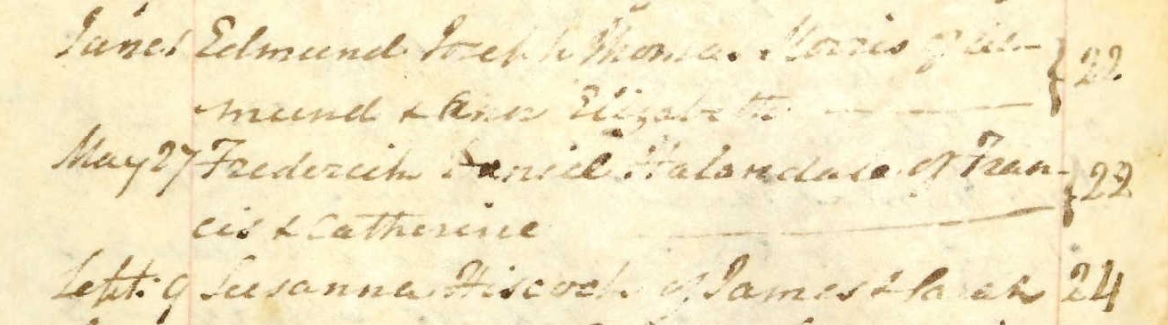 June 1 Edmund Joseph Thomas Morris of Ed-
mund & Ann Elizabeth } 22
May 27 Frederick Daniel of Fran-
cis & Catherine } 22
Sept: 9 Susanna Hiscock of James & Sarah 24